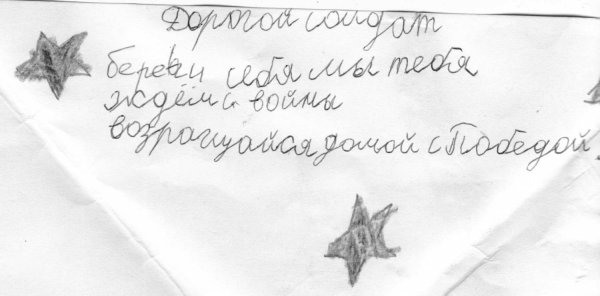 Дорогой солдат
береги себя мы тебя
ждём с войны
возрощайся домой с Победой